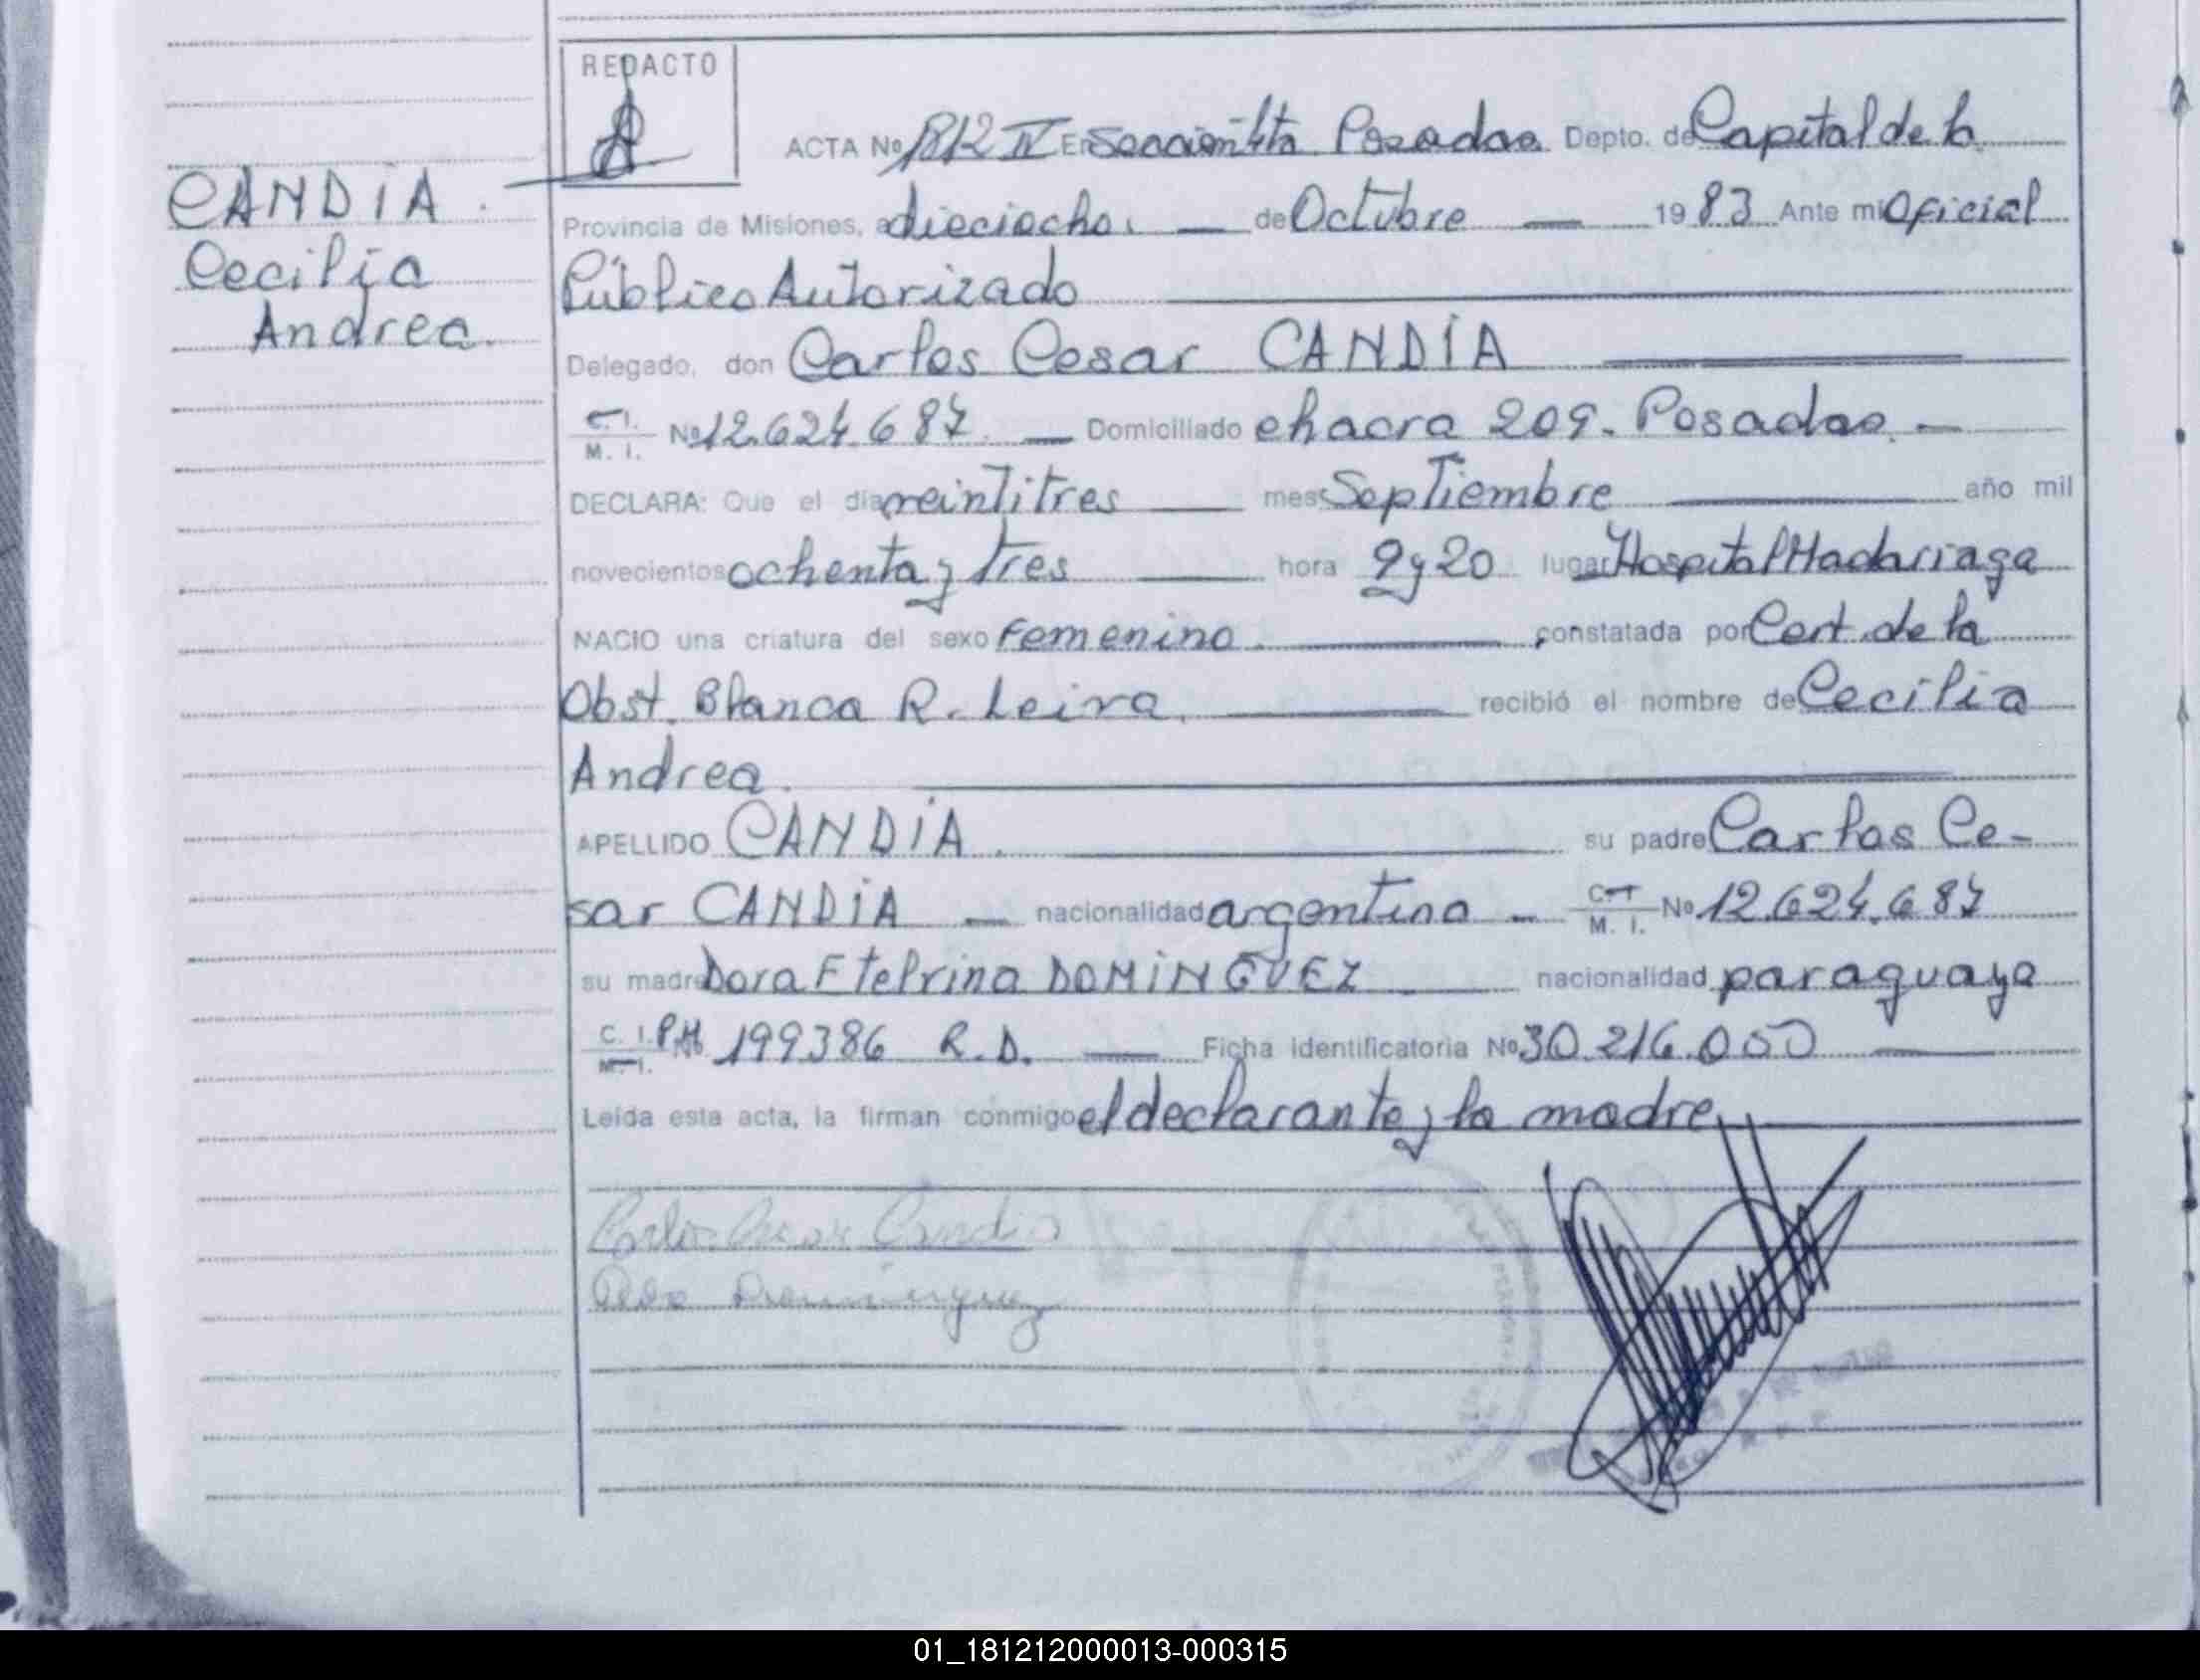 REDACTO
CANDIA
Cecilia
Andrea.
ACTA No 1812 IV En Sección 4ta Posadas Depto. de Capital de la
Provincia de Misiones, a dieciocho. de Octubre 1983 Ante mi Oficial
Público Autorizado
Delegado, don Carlos Cesar CANDIA
C. I.
M. I. No 12.624.687 Domiciliado chacra 209. Posadas.
DECLARA: Que el día veintitres mes Septiembre año mil
novecientos ochenta y tres hora 9 y 20 lugar Hospital Madariaga
NACIO una criatura del sexo Femenino. constatada por Cert. de la
Obst. Blanca R. Leiva. recibió el nombre de Cecilia
Andrea.
APELLIDO CANDIA. su padre Carlos Ce-
sar CANDIA nacionalidad argentina C. I.
M. I. No 12.624.687
su madre Dora Etelvina DOMINGUEZ nacionalidad paraguaya
C. I.
M. I. No 199386 R.D. Ficha identificatoria No 30.216.050
Leída esta acta, la firman conmigo el declarante y la madre
Carlos Cesar Candia
Dominguez
01_181212000013-000315